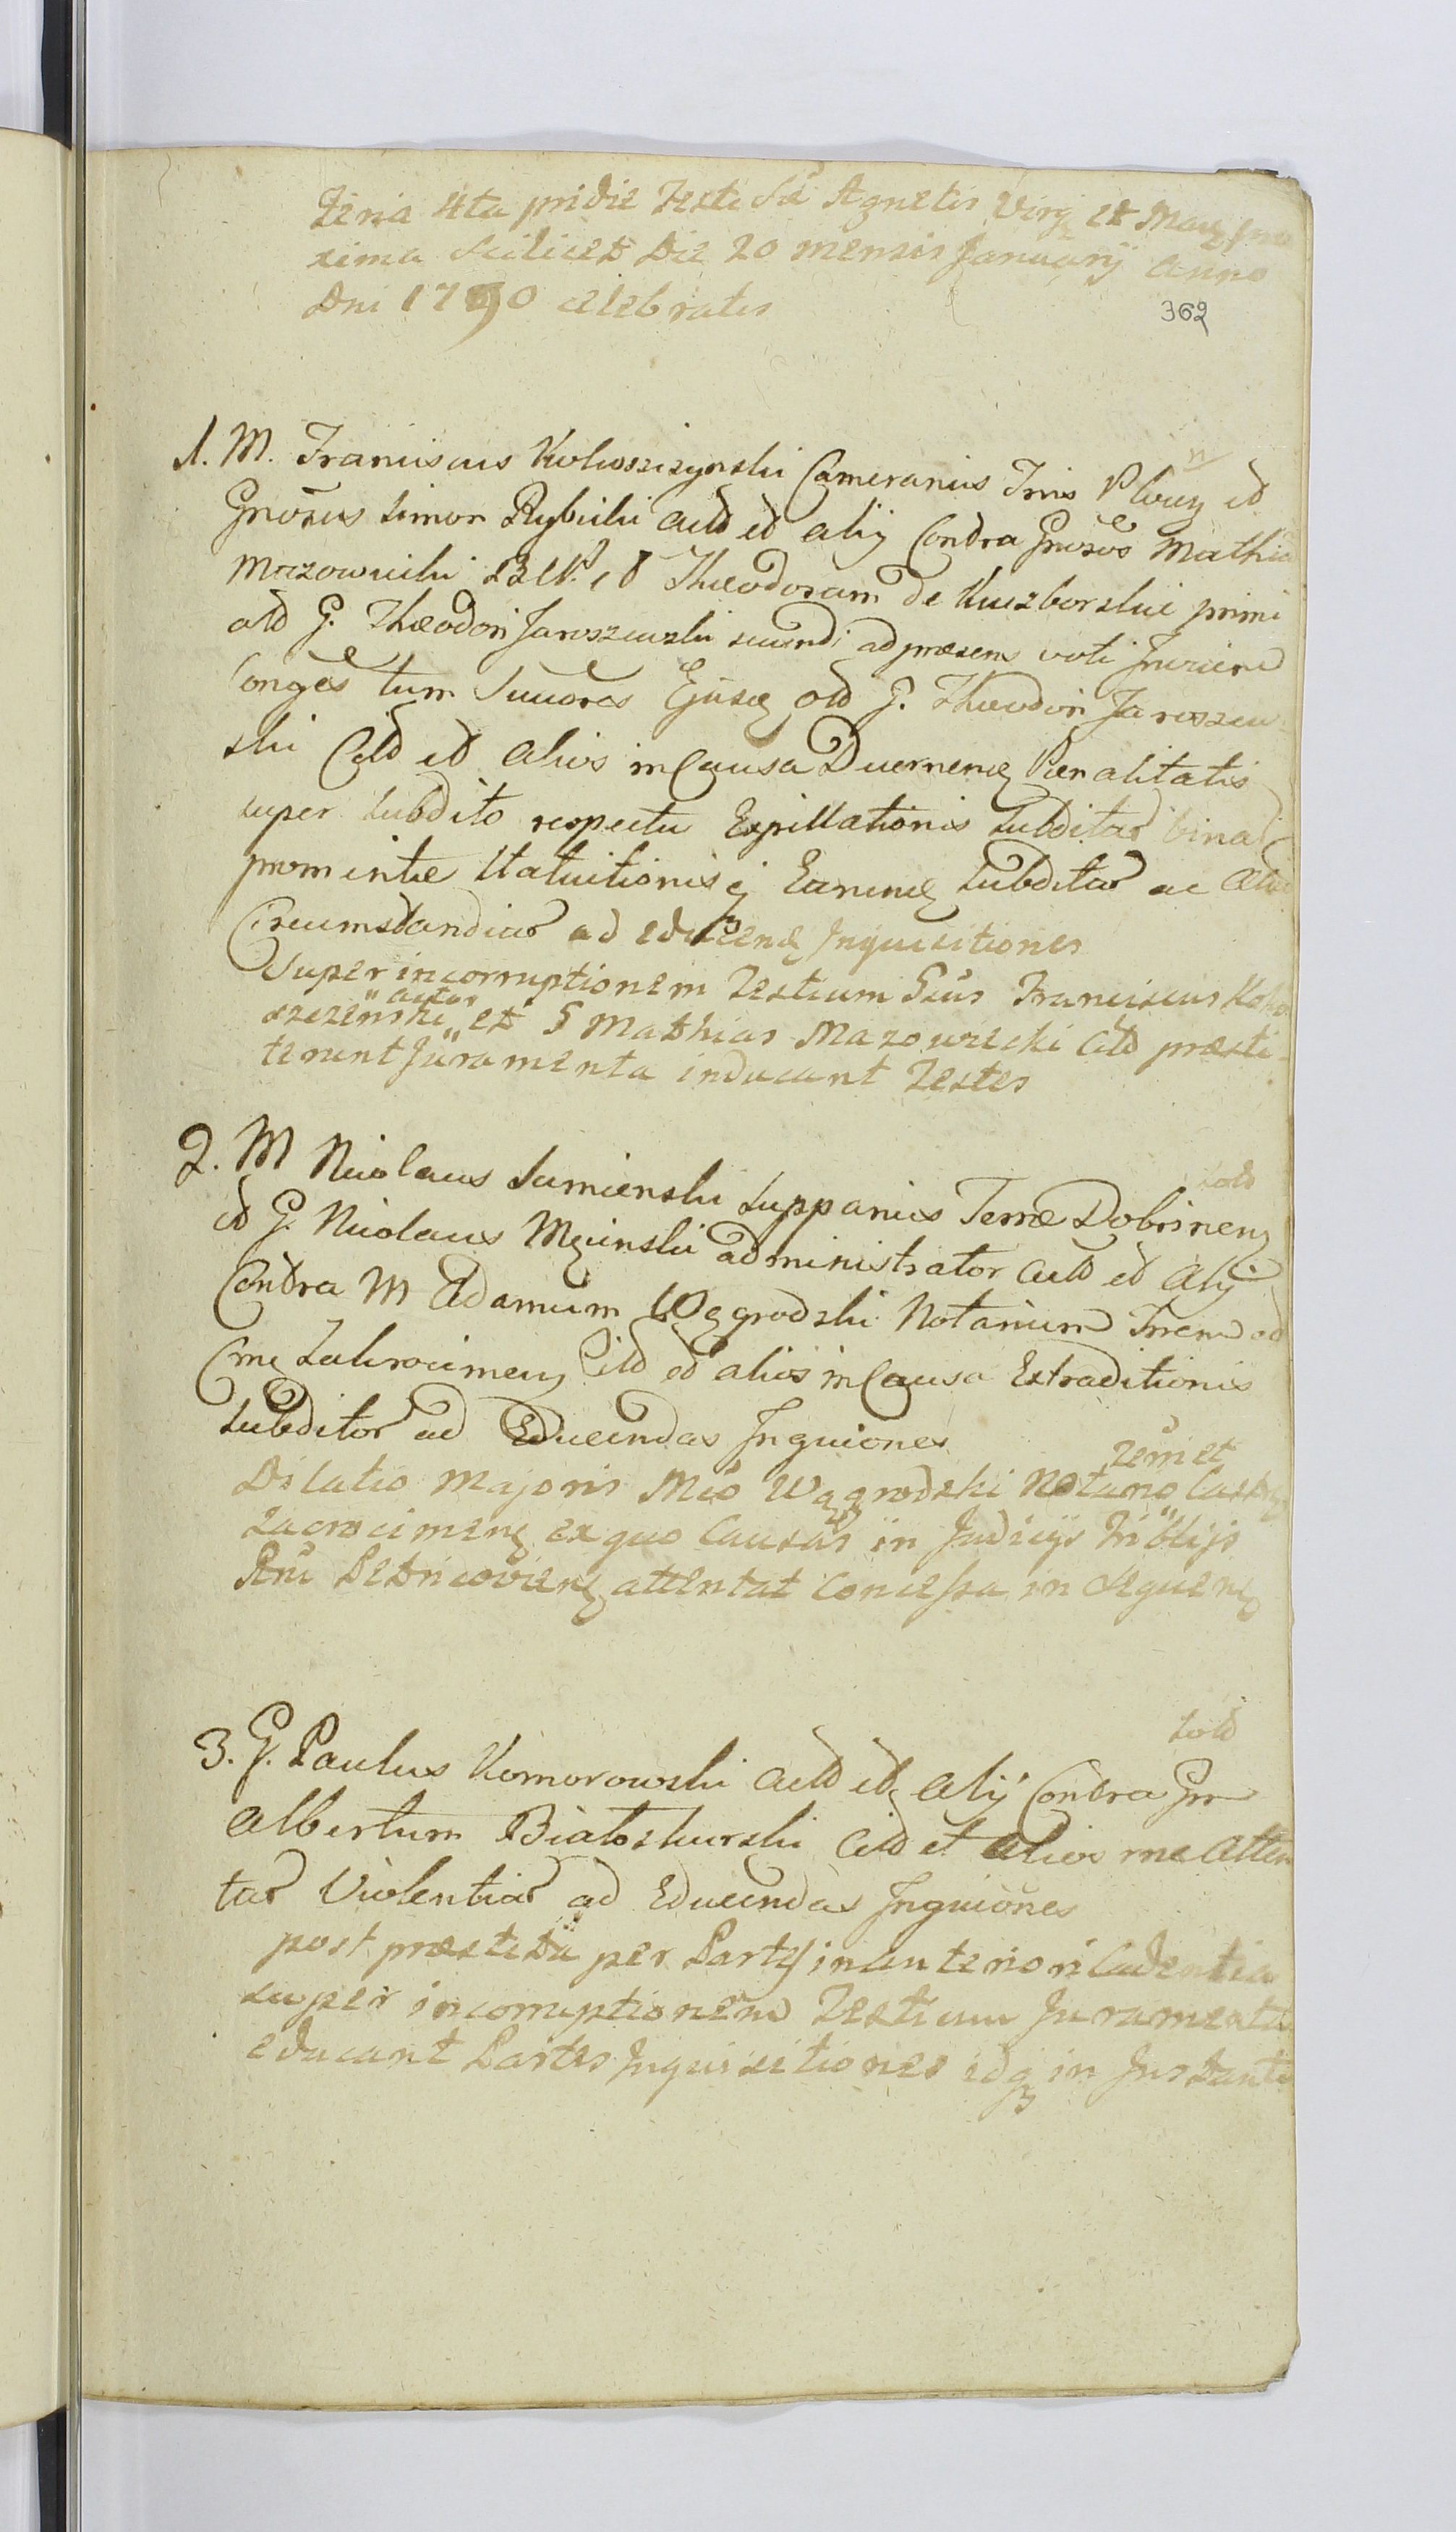 Feria 4ta pridie Festi Sae Agnetis Virg et Mar pro
xima scilicet Die 20 mensis Januarij Anno
Dni 1790 celebratis
362
1. M. Franciscus Kołwoszczynski Camerarius Trris Ploceń et
Gnosus Simon Rybicki Actt et alij Contra Gnosos Mathiā
Mazowiecki et Theodoram de Kuczborskie primi
old G. Theodori Jaroszewski secundi ad praesens voti
Conges tum Succres Ejusd old G. Theodori Jaroszew
ski Citt et alios in Causa Poenalitatis
super subdito respectu Expillationis subditar binar
prom intie Statuitionis ej Earund subditar ac aliar
Circumstantiar ad educend Inquisitiones
Super incorruptionem Testium Gsus Franciscus Koło
szczenski "actor" et G Mathias Mazowiecki Citt praesti
terunt Juramenta inducant Testes
2. M Nicolaus Sumienski Suppanius Terrae Dobrinen
solt
et G. Nicolaus Mginski administrator Actt et alij
Contra M Adamum Wągrodzki Notarium Trrem et
Cme Zakrocimen Citt et alios in Causa Extraditionis
subditor ad Educendas Inquiones
Dilatio Majoris Mco Wągrodzki Notario Castrq
Terri et
Zacrocimenę ex quo Causas in Judicijs Triblijs
Rni Petricoviens attentat Concessa in sequenę
3. G. Paulus Komorowski Actt et alij Contra Gm
solt
Albertum Białoskurski Citt et alios rne atten
tar Violentiar ad Educendas Inquiones
post praestita per Partes in anteriori Cadentia
super incorruptionem Testium Juramenta
educant Partes Inquisitiones idq in Instanti